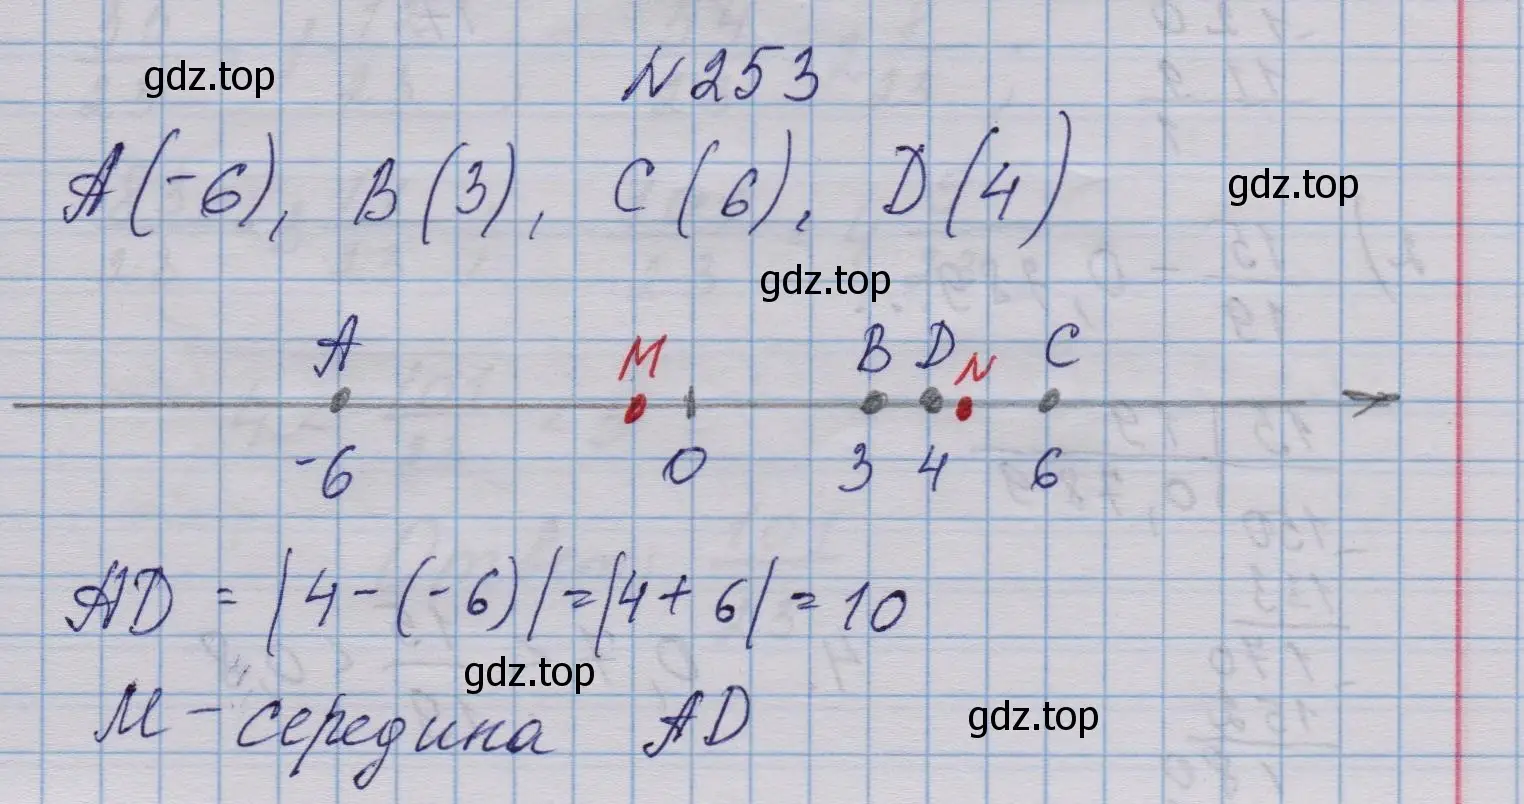 gdz.top
N 253
A(-6), B(3), C(6), D(4)
gdz.top
gdz.top
A M B D N C
-6 0 3 4 6
AD = |4-(-6)|=|4+6|=10
gdz.top
M - середина AD
gdz.top